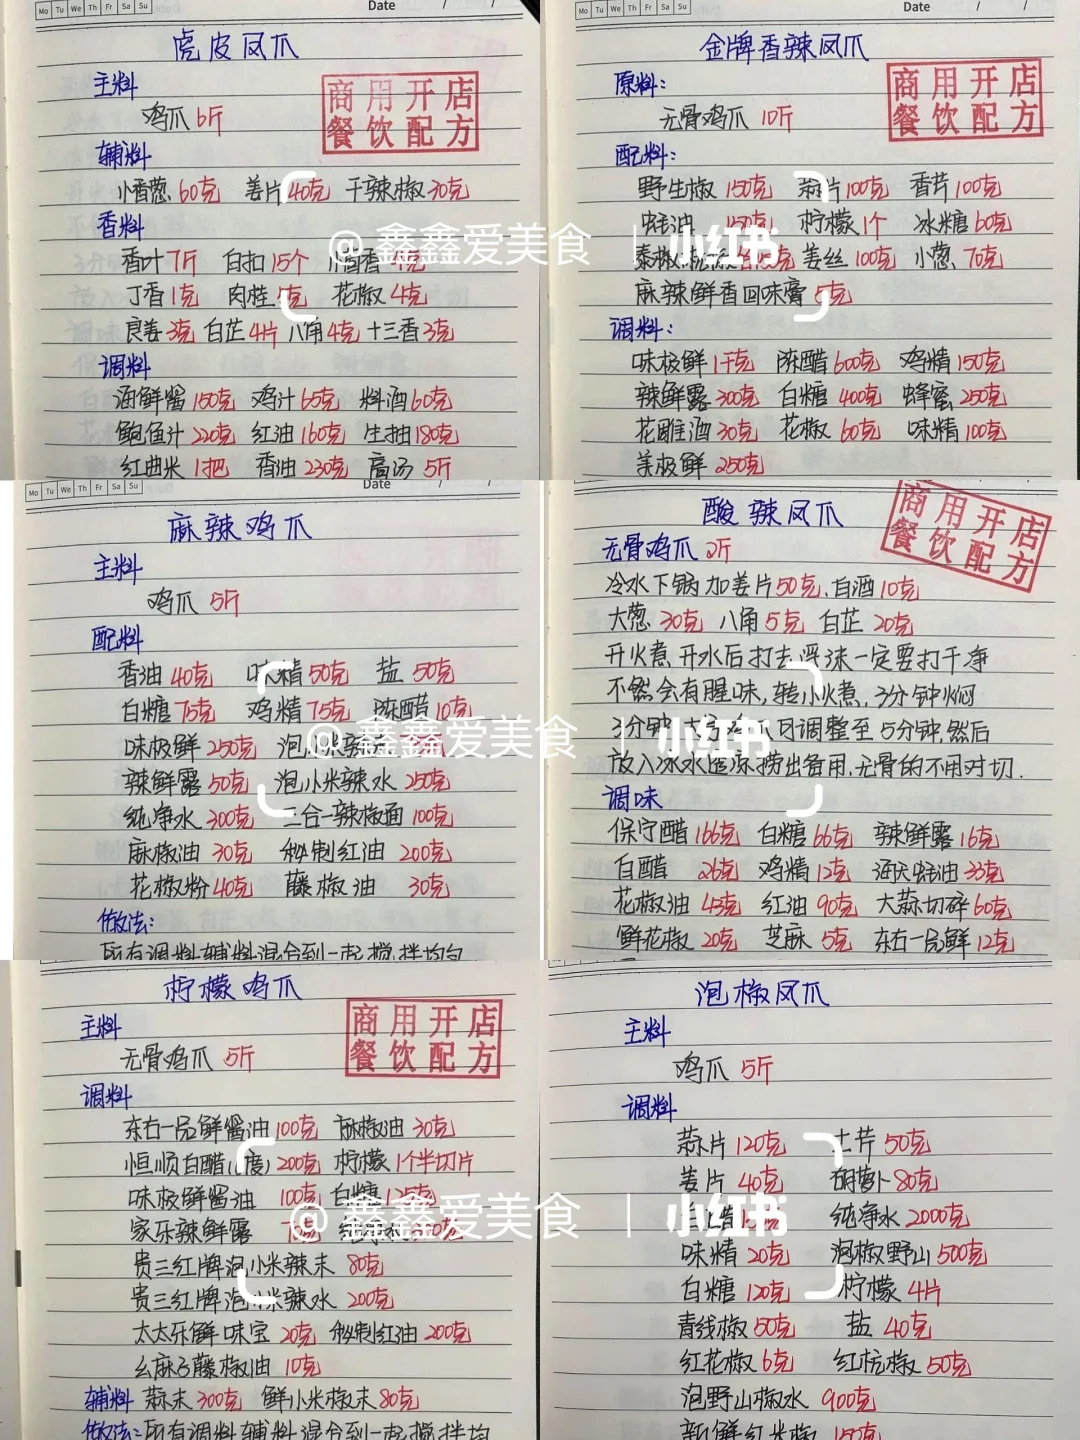 Mo Tu We Th Fr Sa Su
Date / /
虎皮凤爪
商用开店
餐饮配方
主料
鸡爪 6斤
辅料
小香葱 60克 姜片 40克 干辣椒 30克
香料
香叶 7斤 白扣 15个 小茴香
丁香 1克 肉桂 5克 花椒 4克
良姜 3克 白芷 4片 八角 4克 十三香 3克
调料
海鲜酱 150克 鸡汁 65克 料酒 60克
鲍鱼汁 220克 红油 160克 生抽 180克
红曲米 1把 香油 230克 高汤 5斤
Mo Tu We Th Fr Sa Su
Date / /
金牌香辣凤爪
商用开店
餐饮配方
原料:
无骨鸡爪 10斤
配料:
野生椒 150克 蒜片 100克 香芹 100克
蚝油 150克 柠檬 1个 冰糖 60克
姜丝 100克 小葱 70克
麻辣鲜香回味膏 5克
调料:
味极鲜 1千克 陈醋 600克 鸡精 150克
辣鲜露 300克 白糖 400克 蜂蜜 250克
花雕酒 30克 花椒 60克 味精 100克
美极鲜 250克
@鑫鑫爱美食 | 小红书
Mo Tu We Th Fr Sa Su
Date / /
麻辣鸡爪
主料
鸡爪 5斤
配料
香油 40克 味精 50克 盐 50克
白糖 75克 鸡精 75克 陈醋 10克
味极鲜 250克 泡小米辣
辣鲜露 50克 泡小米辣水 250克
纯净水 300克 三合一辣椒面 100克
麻椒油 30克 秘制红油 200克
花椒粉 40克 藤椒油 30克
做法:
所有调料辅料混合到一起,搅拌均匀
酸辣凤爪
商用开店
餐饮配方
无骨鸡爪 2斤
冷水下锅加姜片 50克、白酒 10克
大葱 30克 八角 5克 白芷 20克
开火煮,开水后打去浮沫一定要打干净
不然会有腥味,转小火煮,3分钟焖
3分钟,大 鸡爪可调整至5分钟,然后
放入冰水 捞出备用,无骨的不用对切.
调味
保宁醋 166克 白糖 66克 辣鲜露 16克
白醋 26克 鸡精 12克 海天蚝油 33克
花椒油 43克 红油 90克 大蒜切碎 60克
鲜花椒 20克 芝麻 5克 东古一品鲜 12克
@鑫鑫爱美食 | 小红书
柠檬鸡爪
商用开店
餐饮配方
主料
无骨鸡爪 5斤
调料
东古一品鲜酱油 100克 麻椒油 30克
恒顺白醋( 度) 200克 柠檬 1个半切片
味极鲜酱油 100克 白糖 125克
家乐辣鲜露
贵三红牌泡小米辣末 80克
贵三红牌泡小米辣水 200克
太太乐鲜味宝 20克 秘制红油 200克
幺麻子藤椒油 10克
辅料 蒜末 300克 鲜小米椒末 80克
做法:所有调料辅料混合到一起,搅拌均
泡椒凤爪
主料
鸡爪 5斤
调料
蒜片 120克 土芹 50克
姜片 40克 胡萝卜 80克
纯净水 2000克
味精 20克 泡椒野山 500克
白糖 120克 柠檬 4片
青线椒 50克 盐 40克
红花椒 6克 红杭椒 50克
泡野山椒水 900克
新鲜红米椒 150克
@鑫鑫爱美食 | 小红书